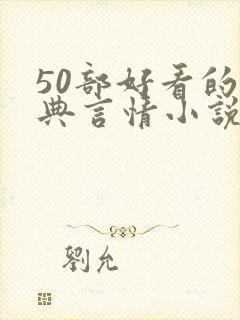 50部好看的
典言情小説
劉允